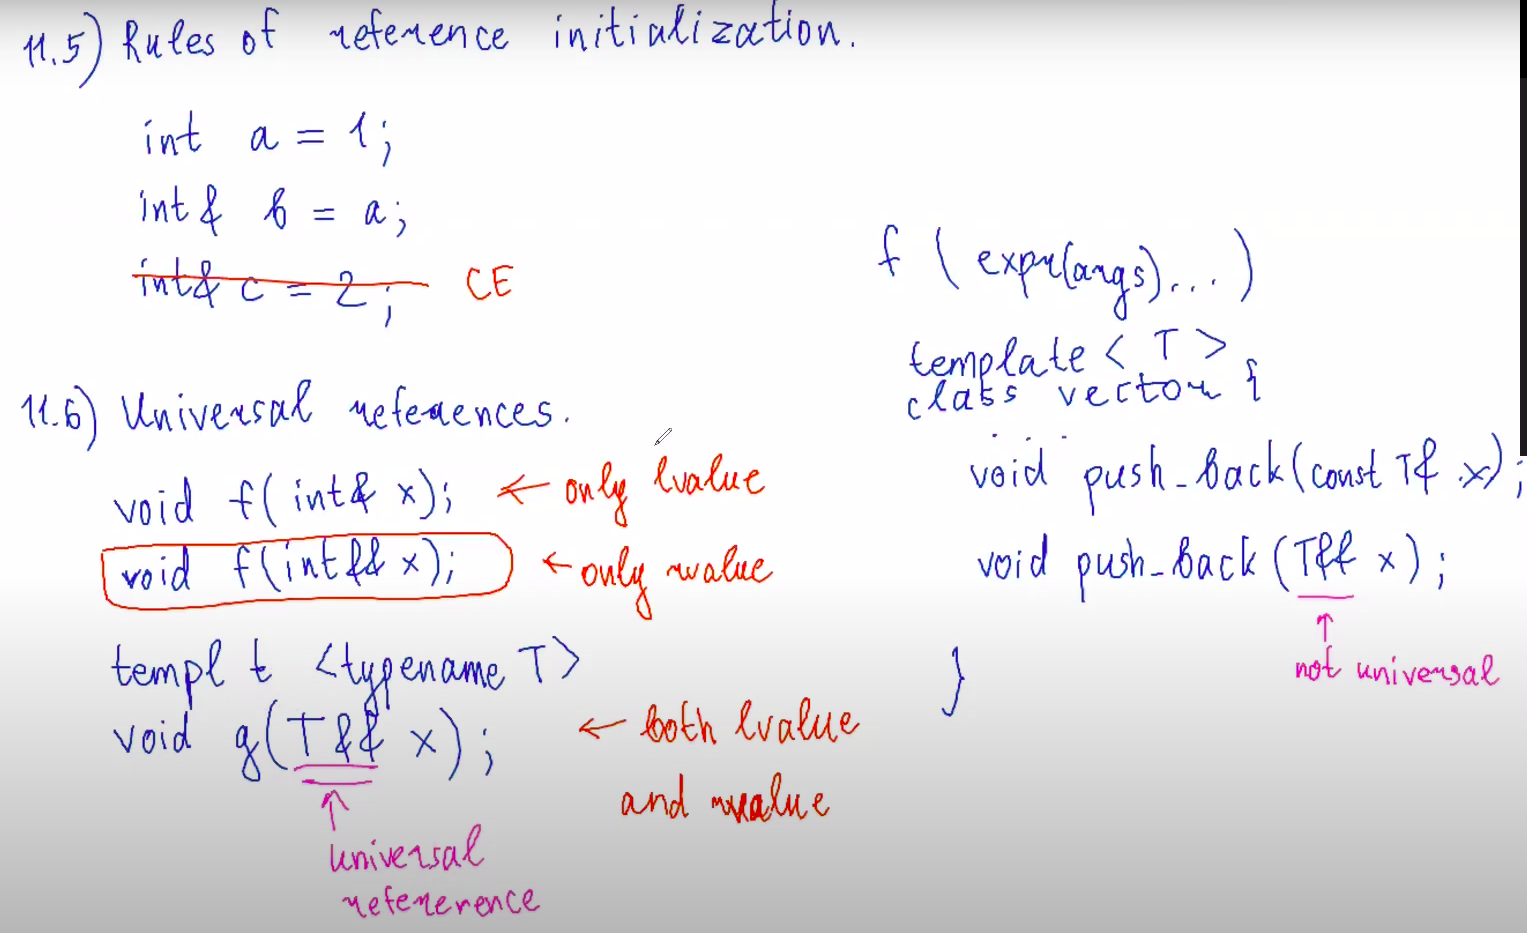 11.5) Rules of reference initialization.
int a = 1;
int& b = a;
int& c = 2; CE
11.6) Universal references.
void f(int& x); ← only lvalue
void f(int&& x); ← only rvalue
templ t <typename T>
void g(T&& x); ← both lvalue
and rvalue
↑
universal
refererence
f (expr(args)...)
template < T >
class vector {
void push_back(const T& x);
void push_back(T&& x);
↑
not universal
}